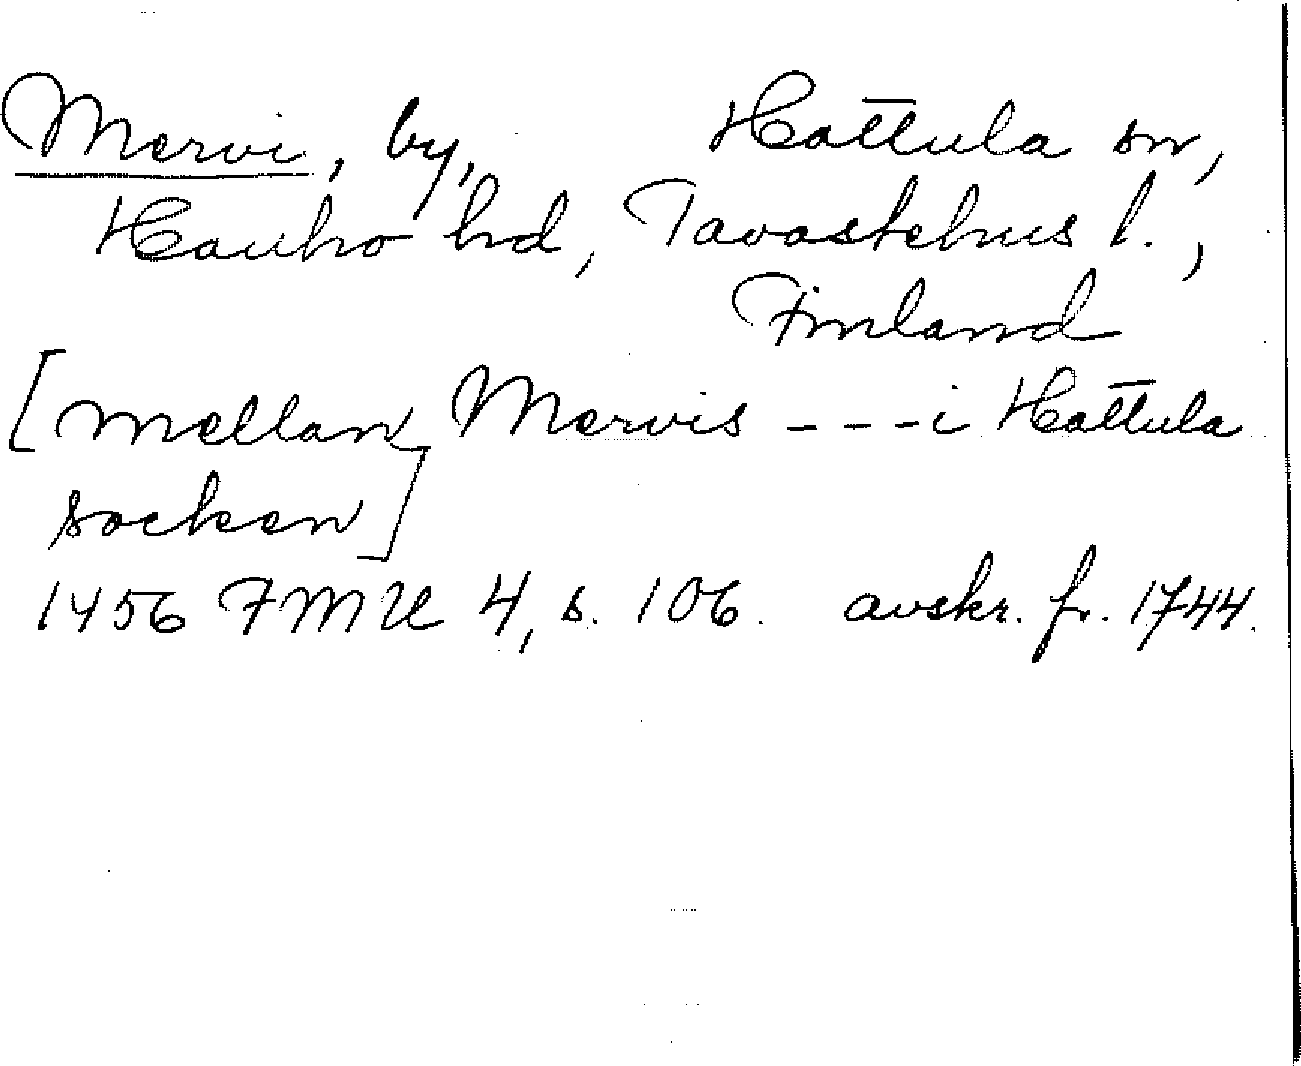 Mervi, by, Hattula sn,
Hauho hd, Tavastehus l.,
Finland
[mellan Mervis ---i Hattula
socken]
1456 FMU 4, s. 106. avskr. fr. 1744.